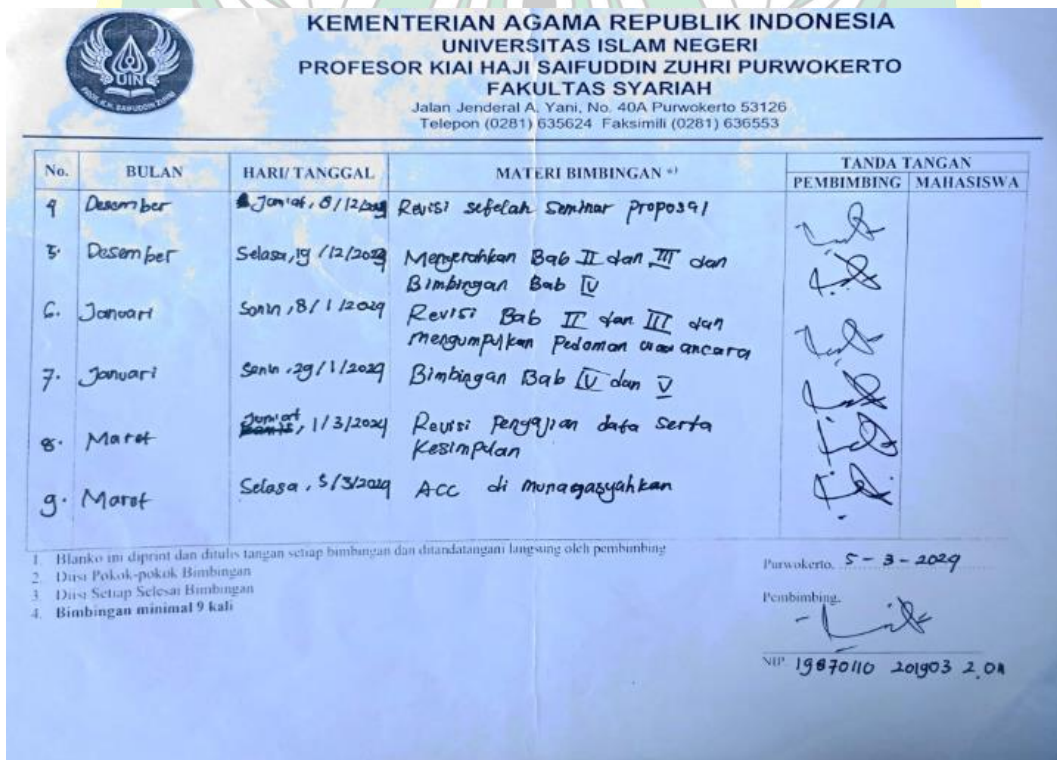 KEMENTERIAN AGAMA REPUBLIK INDONESIA
UNIVERSITAS ISLAM NEGERI
PROFESOR KIAI HAJI SAIFUDDIN ZUHRI PURWOKERTO
FAKULTAS SYARIAH
Jalan Jenderal A. Yani, No. 40A Purwokerto 53126
Telepon (0281) 635624 Faksimili (0281) 636553
UIN
PROF. K.H. SAIFUDDIN ZUHRI
No. BULAN HARI/TANGGAL MATERI BIMBINGAN *) TANDA TANGAN
PEMBIMBING MAHASISWA
4 Desember Jum'at, 8/12/2023 Revisi setelah Seminar Proposal
5. Desember Selasa, 19/12/2023 Menyerahkan Bab II dan III dan
Bimbingan Bab IV
6. Januari Senin, 8/1/2024 Revisi Bab II dan III dan
mengumpulkan Pedoman wawancara
7. Januari Senin, 29/1/2024 Bimbingan Bab IV dan V
8. Maret Jum'at, 1/3/2024 Revisi Penyajian data serta
Kesimpulan
9. Maret Selasa, 5/3/2024 ACC di munaqasyahkan
1. Blanko ini diprint dan ditulis tangan setiap bimbingan dan ditandatangani langsung oleh pembimbing
2. Diisi Pokok-pokok Bimbingan
3. Diisi Setiap Selesai Bimbingan
4. Bimbingan minimal 9 kali
Purwokerto, 5 - 3 - 2024
Pembimbing,
NIP 19870110 201903 2 011